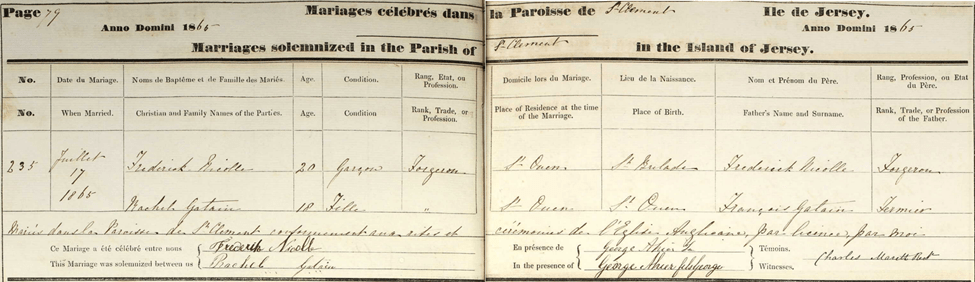 Page 79 Mariages célébrés dans la Paroisse de St Clement Ile de Jersey.
Anno Domini 1865 Anno Domini 1865
Marriages solemnized in the Parish of St Clement in the Island of Jersey.
No. Date du Mariage. Noms de Baptême et de Famille des Mariés. Age. Condition. Rang, Etat, ou Profession. Domicile lors du Mariage. Lieu de la Naissance. Nom et Prénom du Père. Rang, Profession, ou Etat du Père.
No. When Married. Christian and Family Names of the Parties. Age. Condition Rank, Trade, or Profession. Place of Residence at the time of the Marriage. Place of Birth. Father's Name and Surname. Rank, Trade, or Profession of the Father.
235 Juillet 17 1865 Frederick Nicolle 20 Garçon Forgeron St Ouen St Brelade Frederick Nicolle Forgeron
Rachel Gatain 18 Fille " St Ouen St Ouen François Gatain Fermier
Mariés dans la Paroisse de St Clement conformément aux rites et cérémonies de l'Eglise Anglicane, par licence, par moi
Ce Mariage a été célébré entre nous Frederik Nicolle En présence de George Témoins. Charles
This Marriage was solemnized between us Rachel Gatain In the presence of George Witnesses.